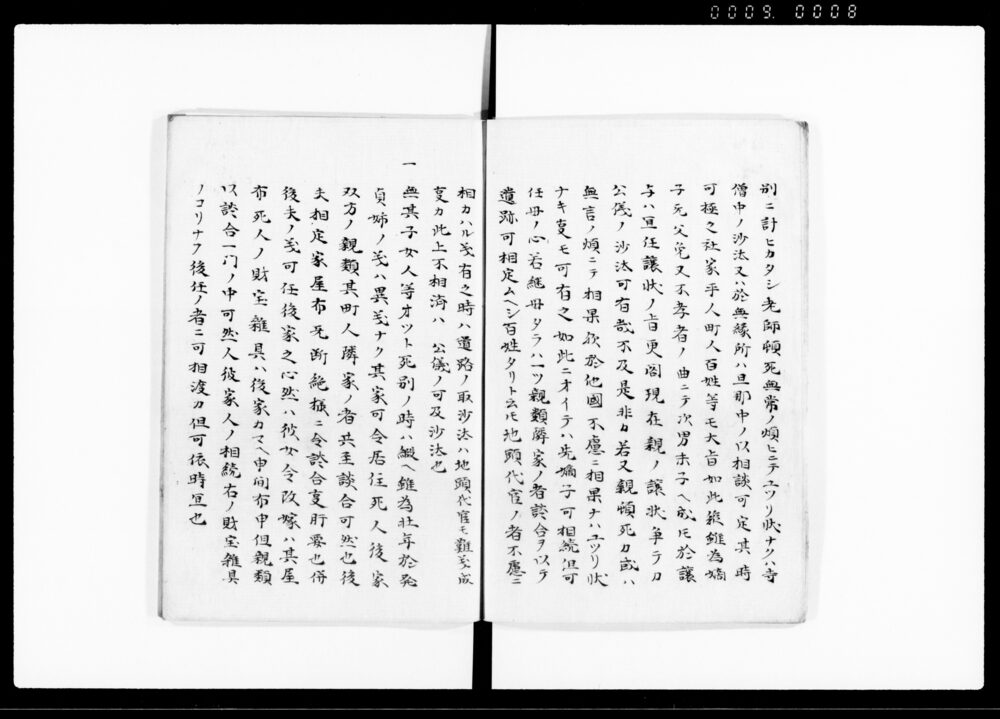 0009. 0008
別ニ計ヒカタシ老師頓死無常ノ煩ヒニテユツリ状ナクハ寺
僧中ノ沙汰又ハ於無縁所ハ旦那中ノ以相談可定其時
可極之社家平人町人百姓等モ大旨如此縦雖為嫡
子死父堂又不孝者ノ曲ニテ次男末子ヘ成氏於譲
与ハ宜任譲状ノ旨更閣現在親ノ譲状争ラカ
公儀ノ沙汰可有哉不及是非カ若又親頓死カ或ハ
無言ノ煩ニテ相果歟於他国不慮ニ相果ナハユツリ状
ナキ事モ可有之如此ニオイテハ先嫡子可相続但可
任母ノ心若継母タラハ一ツ親類隣家ノ者談合ヲ以テ
遺跡可相定ムヘシ百姓タリト云トモ地頭代官ノ者不慮ニ
相カハル義有之時ハ道路ノ取沙汰ハ地頭代官モ難義成
事カ此上不相済ハ 公儀ノ可及沙汰也
一
無其子女人等オツト死別ノ時ハ縦ヘ雖為壮年於発
貞姉ノ義ハ異義ナク其家可令居住死人後家
双方ノ親類其町人隣家ノ者共至談合可然也後
夫相定家屋布死断絶様ニ令談合事肝要也併
後夫ノ義可任後家之心然ハ彼女令改嫁ハ其屋
布死人ノ財宝雑具ハ後家カマヘ申間布申但親類
以談合一門ノ中可然人彼家人ノ相続右ノ財宝雑具
ノコリナク後任ノ者ニ可相渡カ但可依時宜也